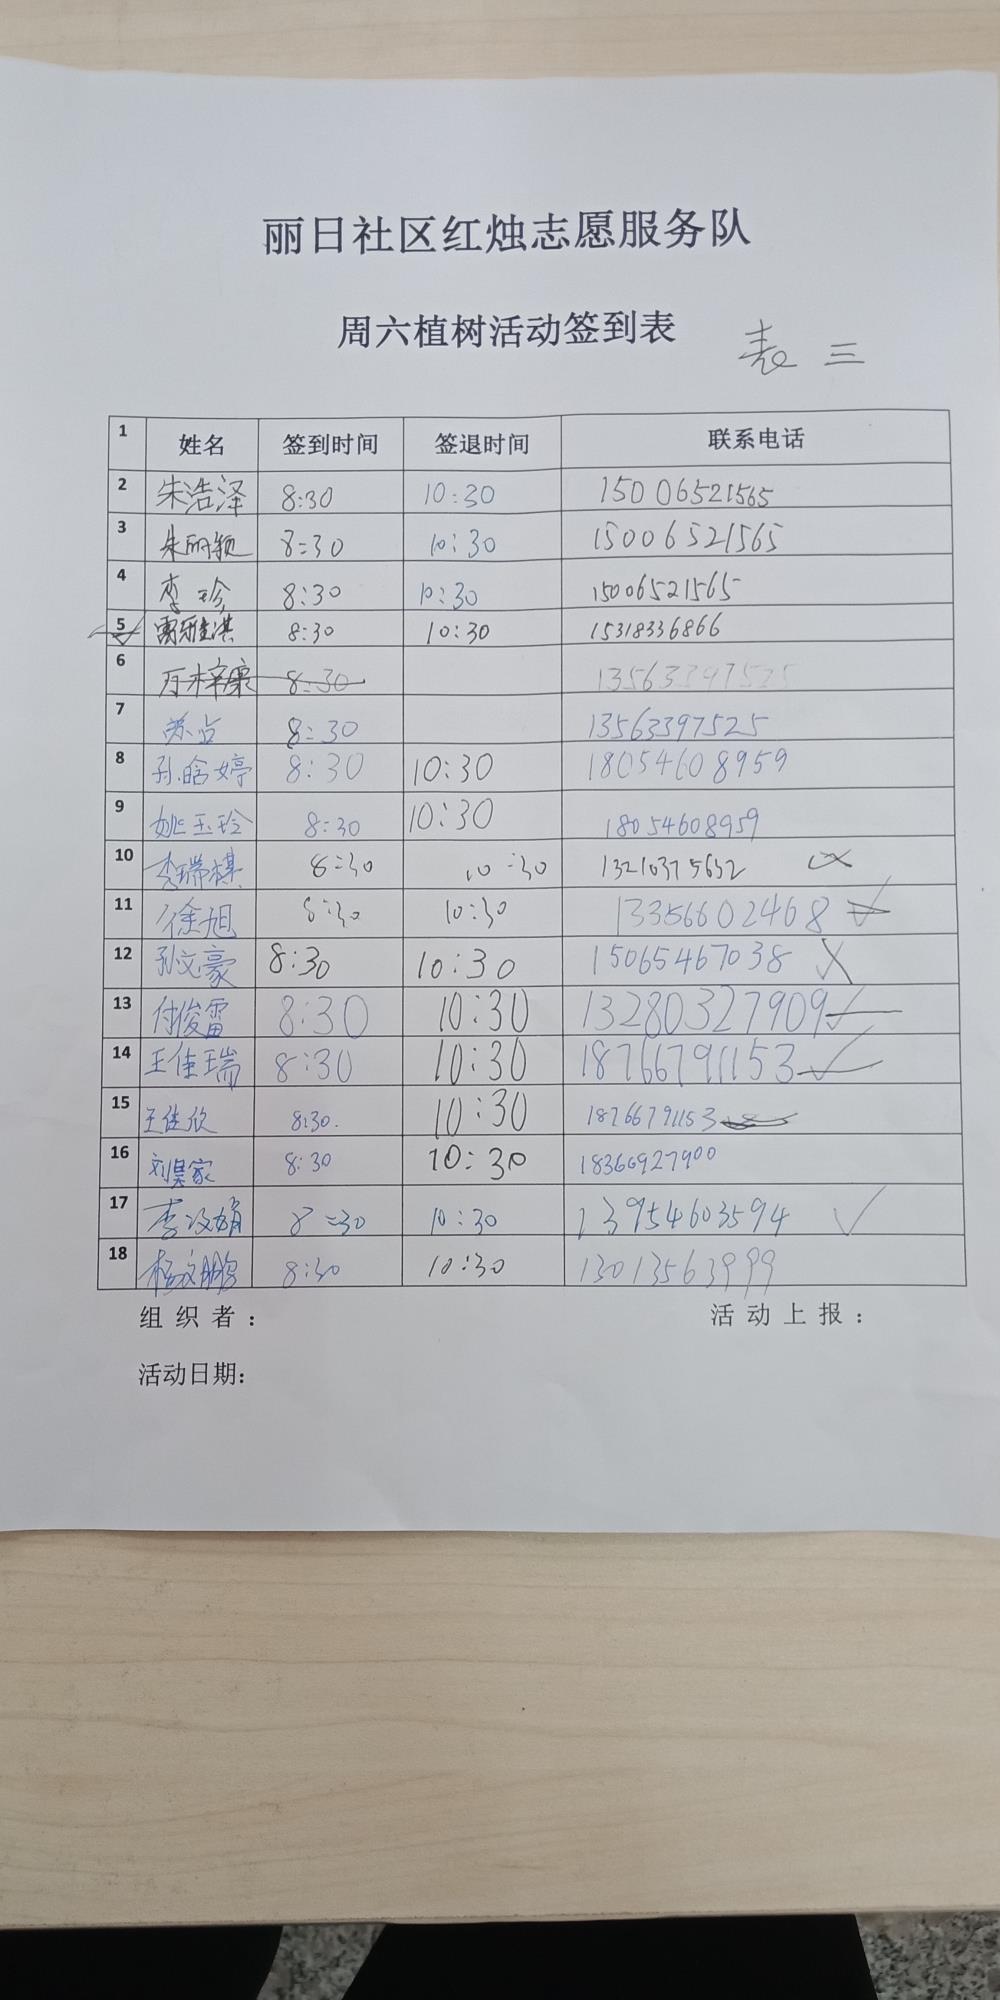 丽日社区红烛志愿服务队
周六植树活动签到表 表三
1 姓名 签到时间 签退时间 联系电话
2 朱浩泽 8:30 10:30 15006521565
3 朱丽颖 8:30 10:30 15006521565
4 李珍 8:30 10:30 15006521565
5 8:30 10:30 15318336866
6 8:30 13563397525
7 8:30 13563397525
8 孙晗婷 8:30 10:30 18054608959
9 姚玉玲 8:30 10:30 18054608959
10 李瑞棋 8:30 10:30 13210375632
11 徐旭 8:30 10:30 13356602468
12 孙文豪 8:30 10:30 15065467038
13 付俊雷 8:30 10:30 13280327909
14 王佳瑞 8:30 10:30 18766791153
15 王佳欣 8:30. 10:30 18766791153
16 刘昊家 8:30 10:30 18366927900
17 李汶娟 8:30 10:30 13954603594
18 杨文鹏 8:30 10:30 13013563999
组织者： 活动上报：
活动日期：